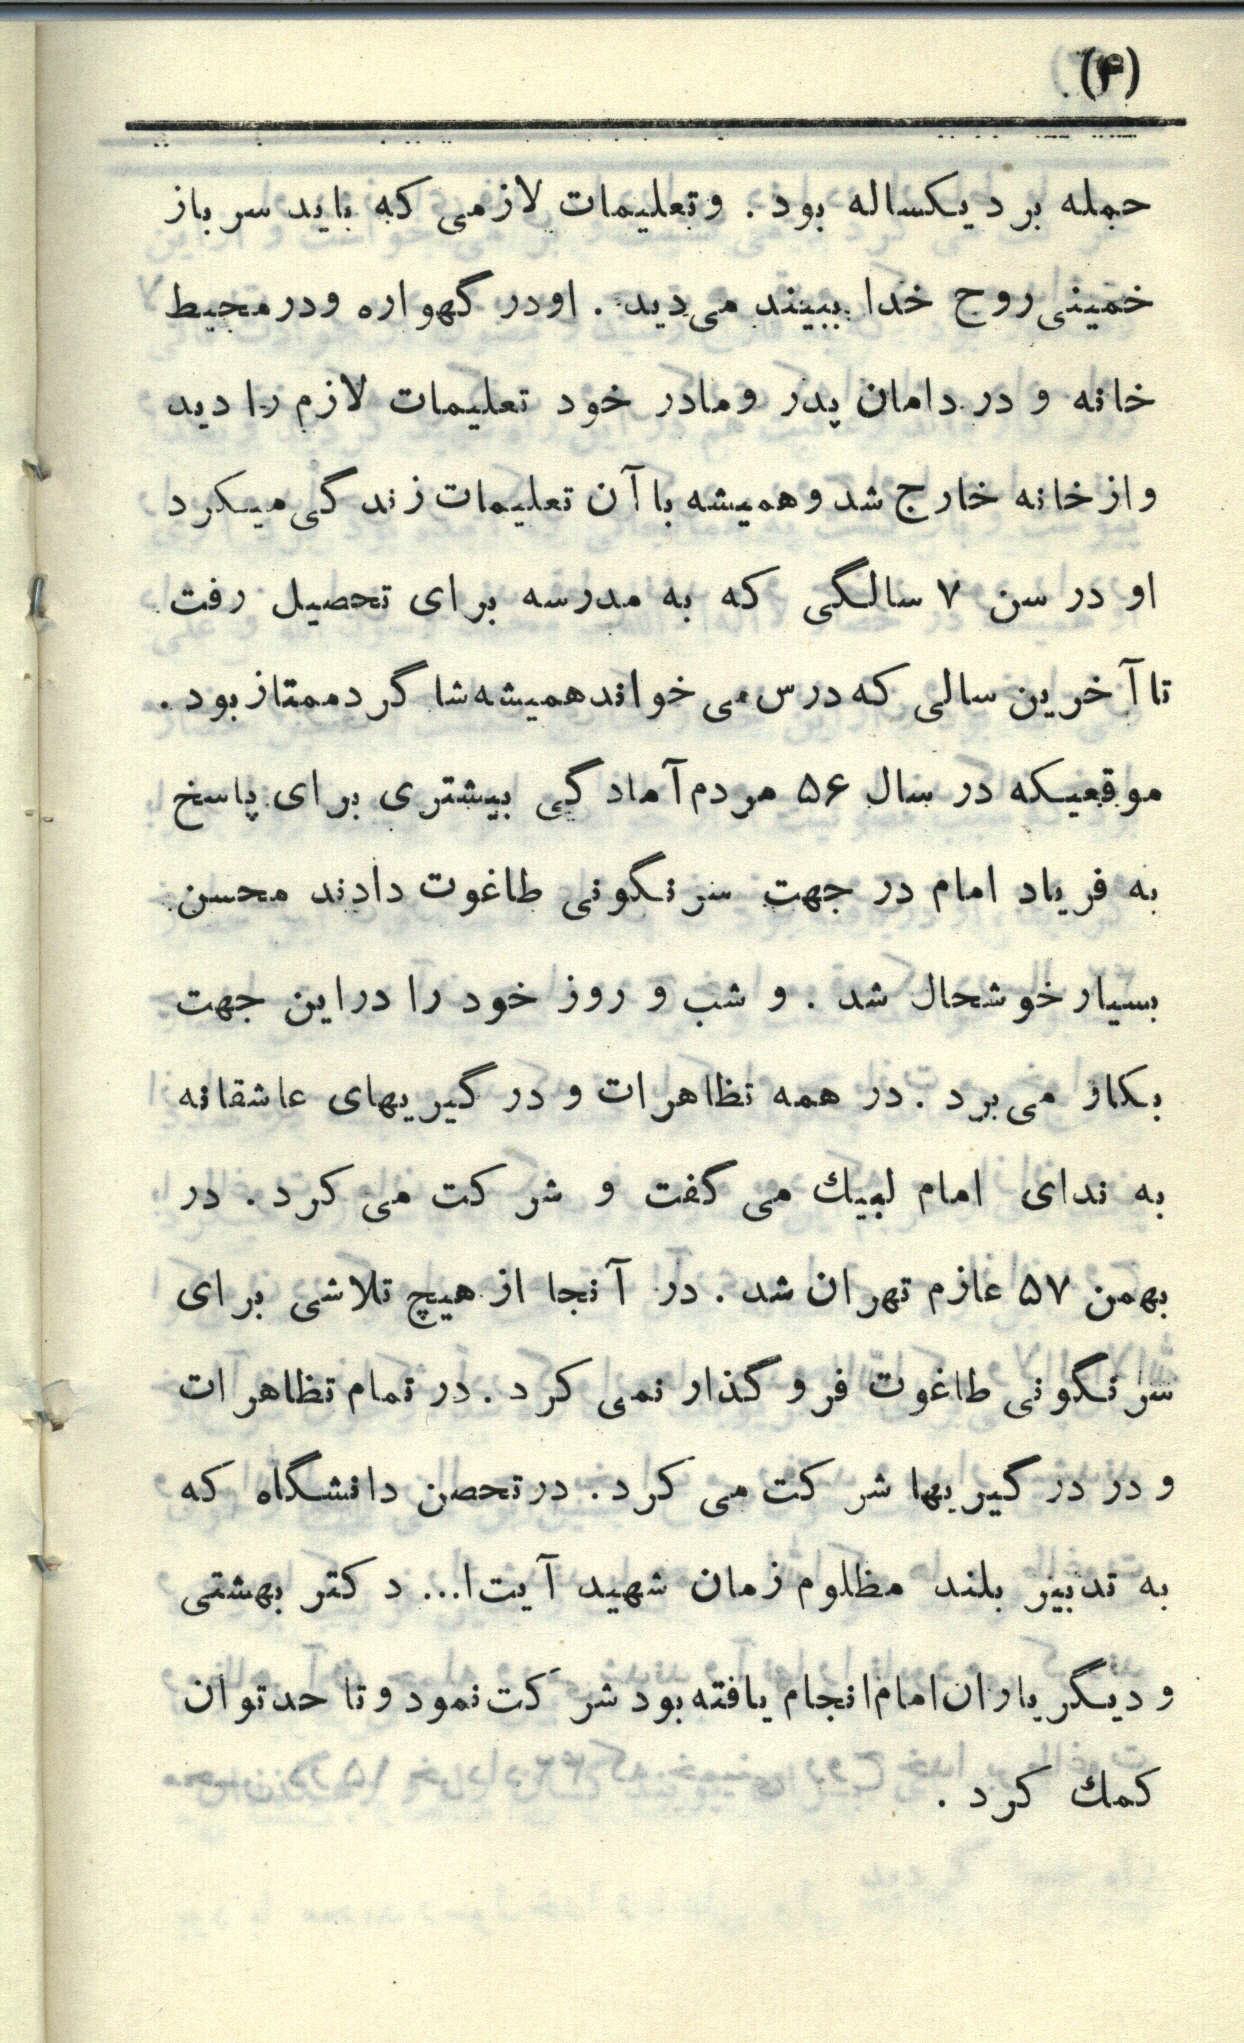 (۴)
حمله برد یکساله بود . و تعلیمات لازمی که باید سرباز
خمینی روح خدا ببیند می‌دید . او در گهواره و در محیط
خانه و در دامان پدر و مادر خود تعلیمات لازم را دید
و از خانه خارج شد و همیشه با آن تعلیمات زندگی میکرد
او در سن ۷ سالگی که به مدرسه برای تحصیل رفت
تا آخرین سالی که درس می خواند همیشه شاگرد ممتاز بود .
موقعیکه در سال ۵۶ مردم آمادگی بیشتری برای پاسخ
به فریاد امام در جهت سرنگونی طاغوت دادند محسن
بسیار خوشحال شد . و شب و روز خود را دراین جهت
بکار می‌برد . در همه تظاهرات و درگیریهای عاشقانه
به ندای امام لبیك می گفت و شرکت می کرد . در
بهمن ۵۷ عازم تهران شد . در آنجا از هیچ تلاشی برای
سرنگونی طاغوت فروگذار نمی کرد . در تمام تظاهرات
و در درگیریها شرکت می کرد . در تحصن دانشگاه که
به تدبیر بلند مظلوم زمان شهید آیت‌ا... دکتر بهشتی
و دیگر یاران امام انجام یافته بود شرکت نمود و تا حد توان
کمك کرد .